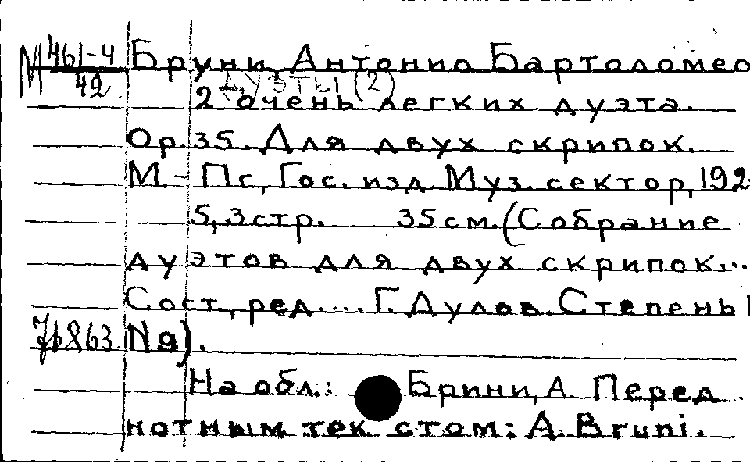 М 461-4/42 Бруни, Антонио Бартоломео
Дуэты (2)
2 очень легких дуэта.
Ор.35. Для двух скрипок.
М. - Пг, Гос. изд. Муз. сектор, 192
5, 3 стр. 35 см. (Собрание
дуэтов для двух скрипок...
Сост., ред.... Г. Дулов. Степень I
N 9).
На обл.: Брини, А. Перед
нотным текстом: A. Bruni.